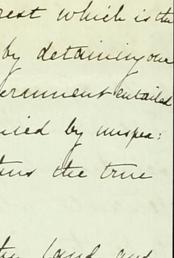 rest which is the
by detaining our
ernment entailed
nied by unspea:
tens the true
and